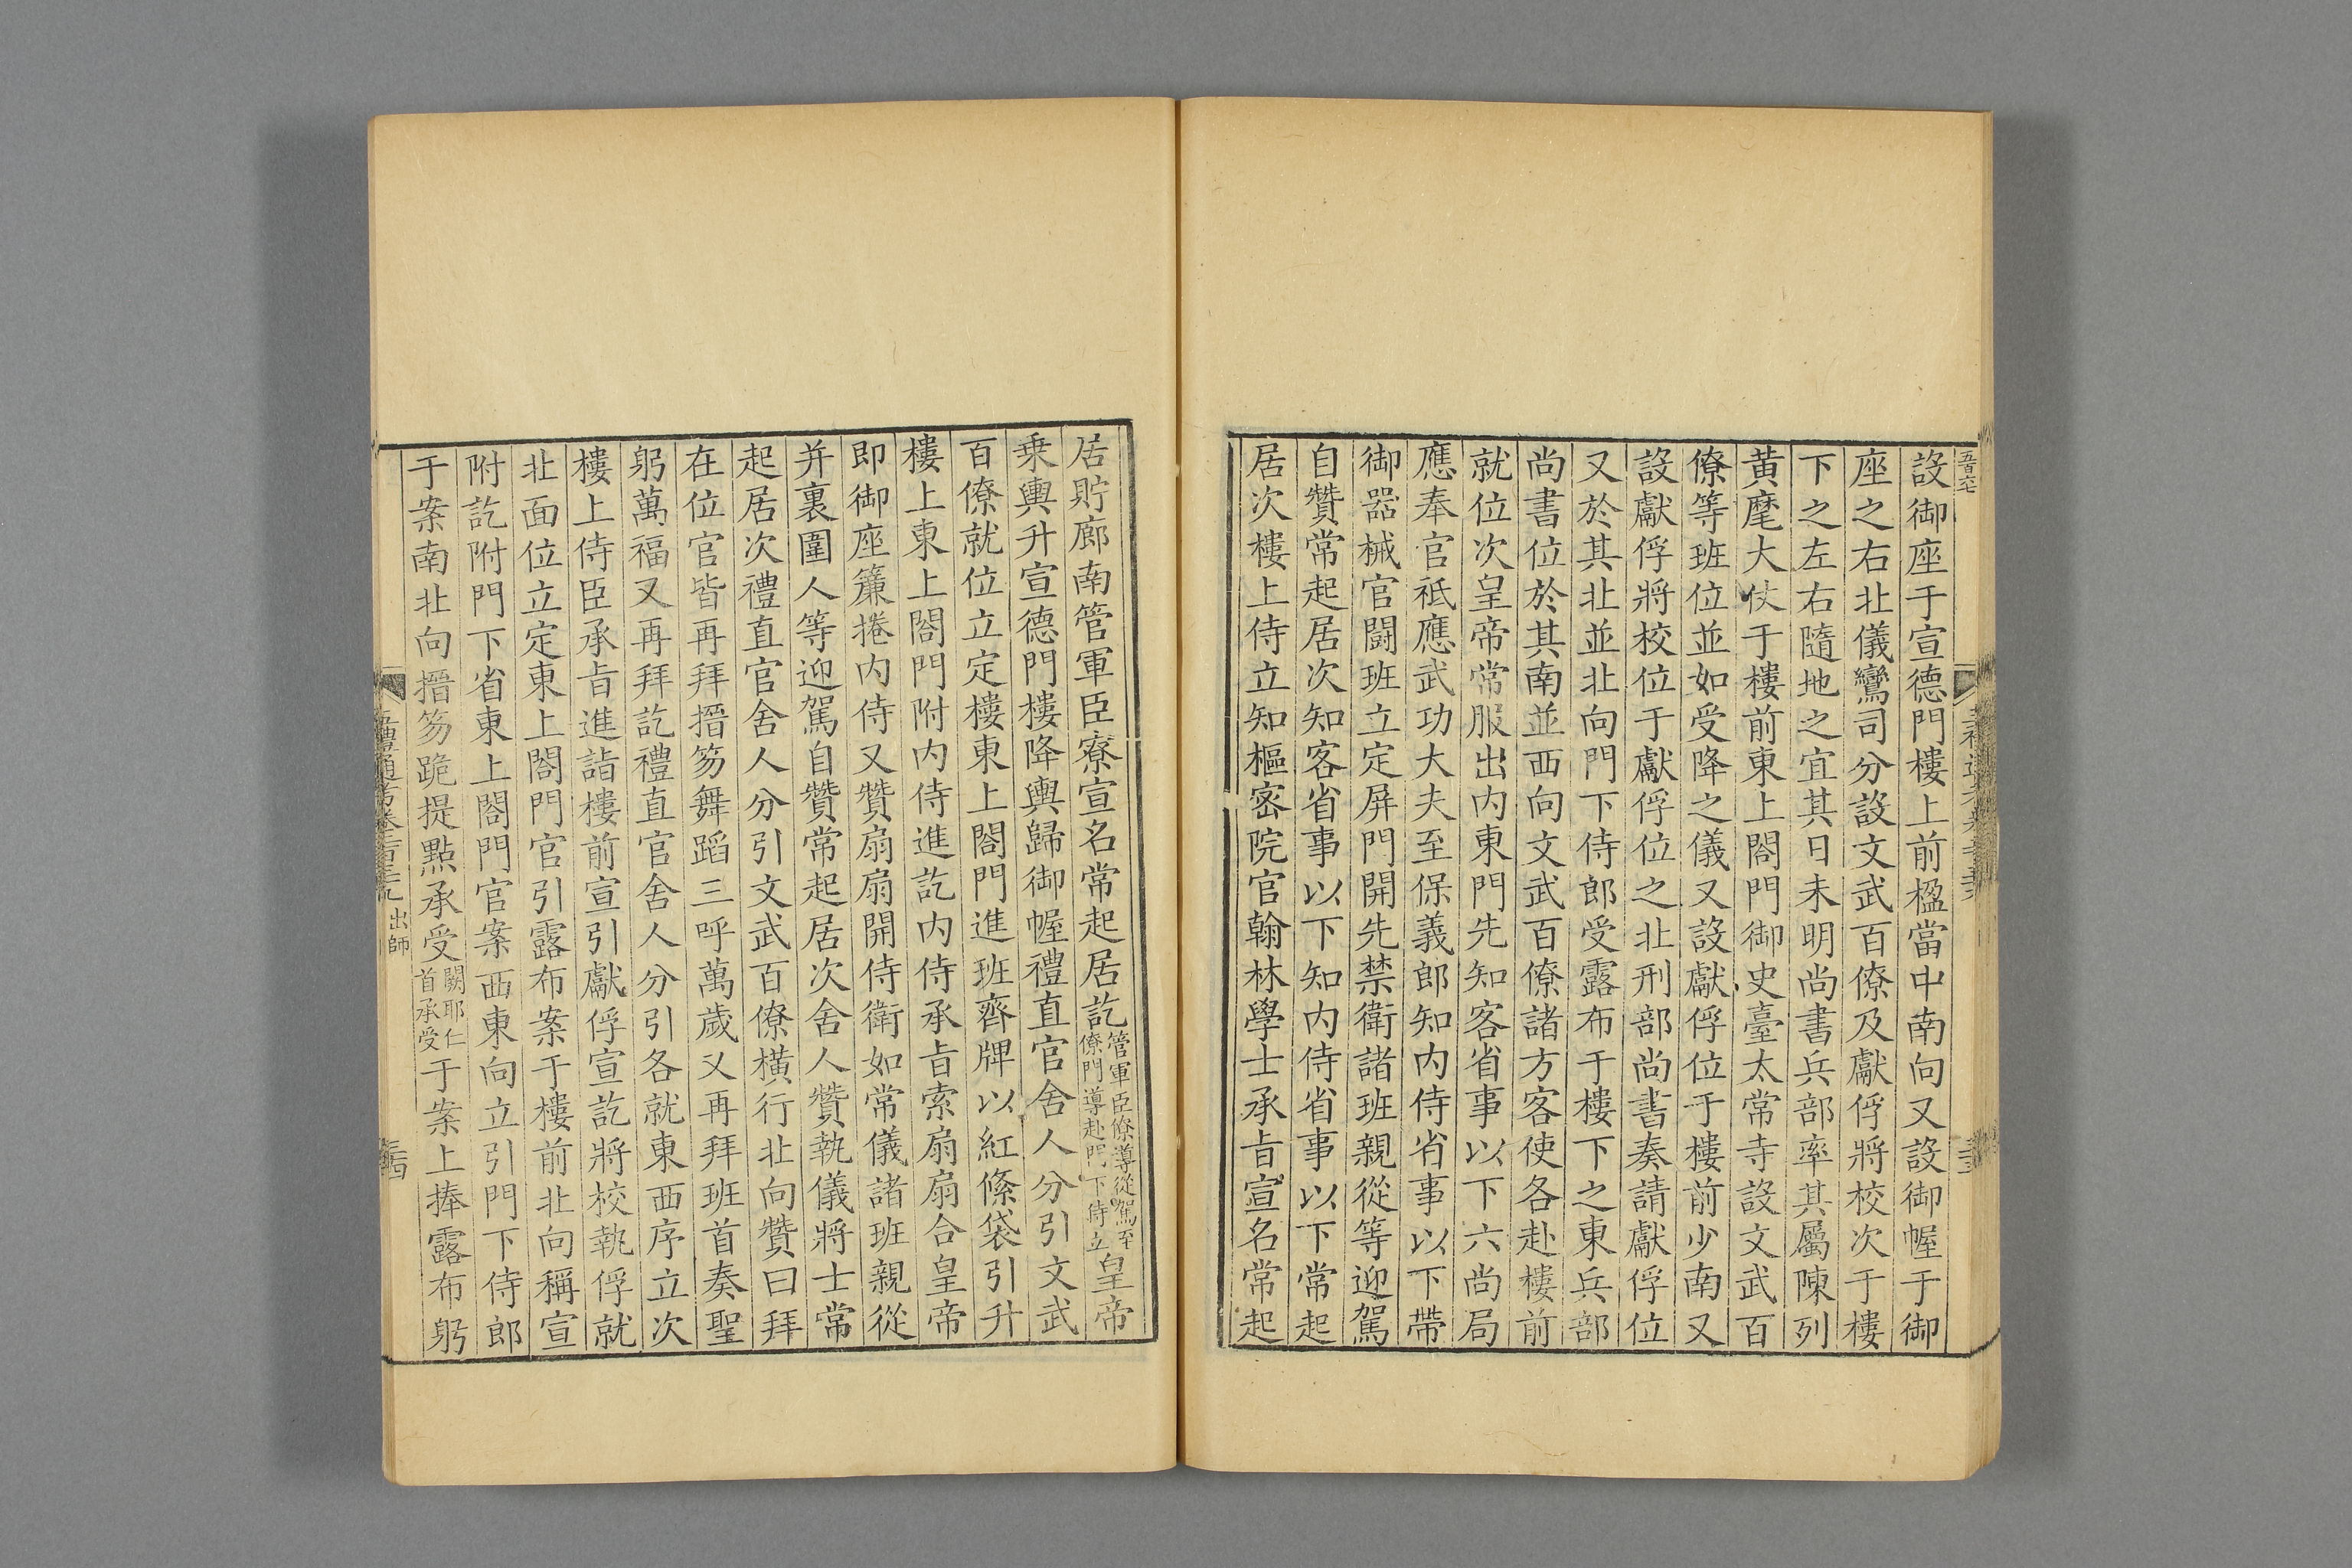 設御座于宣德門樓上前楹當中南向又設御幄于御
座之右北儀鸞司分設文武百僚及獻俘將校次于樓
下之左右隨地之宜其日未明尚書兵部率其屬陳列
黃麾大仗于樓前東上閤門御史臺太常寺設文武百
僚等班位並如受降之儀又設獻俘位于樓前少南又
設獻俘將校位于獻俘位之北刑部尚書奏請獻俘位
又於其北並北向門下侍郎受露布于樓下之東兵部
尚書位於其南並西向文武百僚諸方客使各赴樓前
就位次皇帝常服出內東門先知客省事以下六尚局
應奉官祗應武功大夫至保義郎知內侍省事以下帶
御器械官闘班立定屏門開先禁衛諸班親從等迎駕
自贊常起居次知客省事以下知內侍省事以下常起
居次樓上侍立知樞密院官翰林學士承旨宣名常起
居貯廊南管軍臣寮宣名常起居訖管軍臣僚導從駕至僚門導赴門下侍立皇帝
乗輿升宣德門樓降輿歸御幄禮直官舍人分引文武
百僚就位立定樓東上閤門進班齊牌以紅絛袋引升
樓上東上閤門附內侍進訖內侍承旨索扇扇合皇帝
即御座簾捲内侍又贊扇扇開侍衛如常儀諸班親從
并裏圍人等迎駕自贊常起居次舍人贊執儀將士常
起居次禮直官舍人分引文武百僚橫行北向贊曰拜
在位官皆再拜搢笏舞蹈三呼萬歲又再拜班首奏聖
躬萬福又再拜訖禮直官舍人分引各就東西序立次
樓上侍臣承旨進詣樓前宣引獻俘宣訖將校執俘就
北面位立定東上閤門官引露布案于樓前北向稱宣
附訖附門下省東上閤門官案西東向立引門下侍郎
于案南北向搢笏跪提點承受闕耶仁首承受于案上捧露布躬
出師